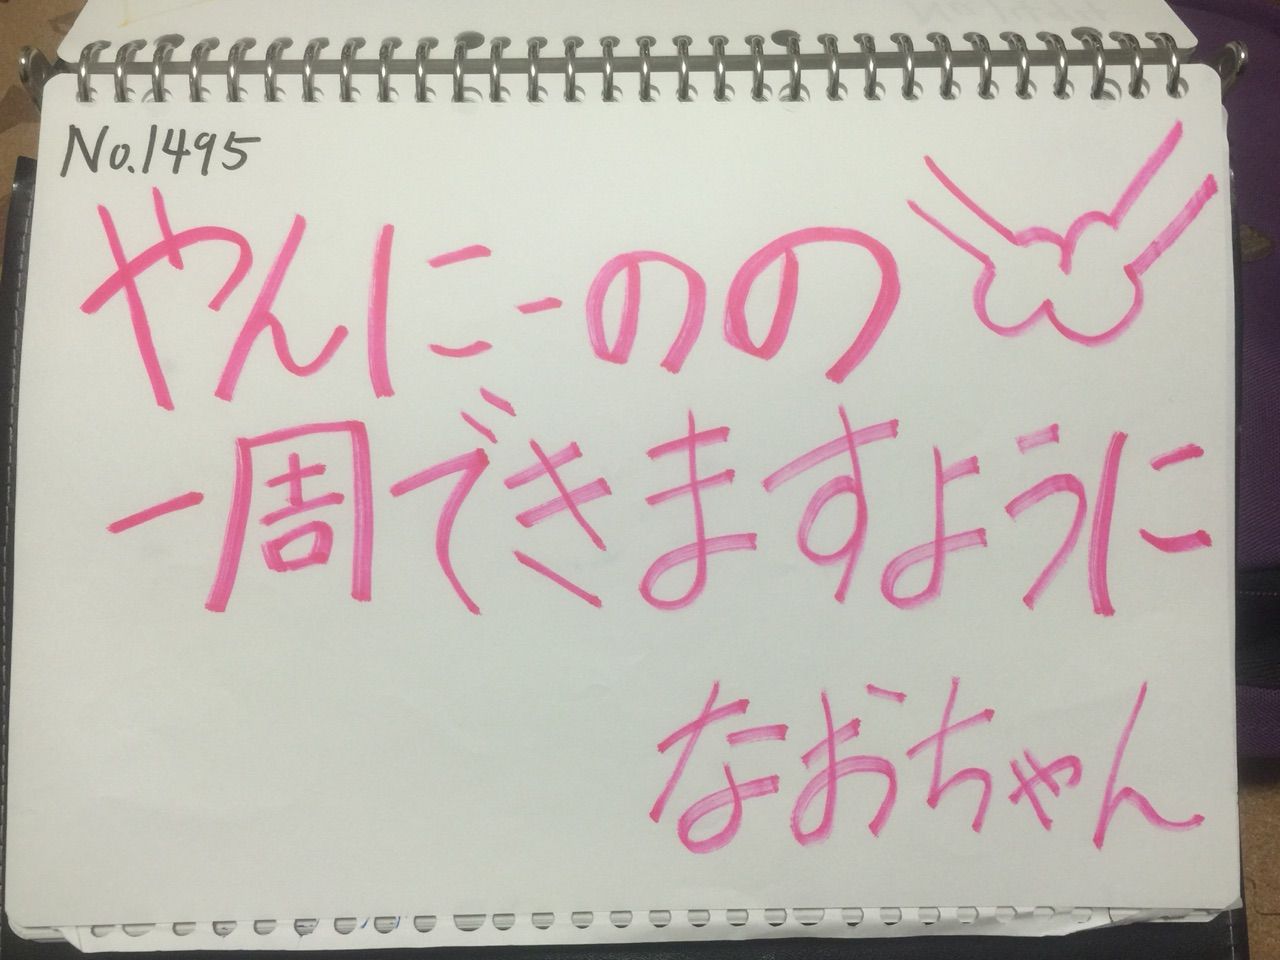 No.1495
やんにーのの
一周できますように
なおちゃん